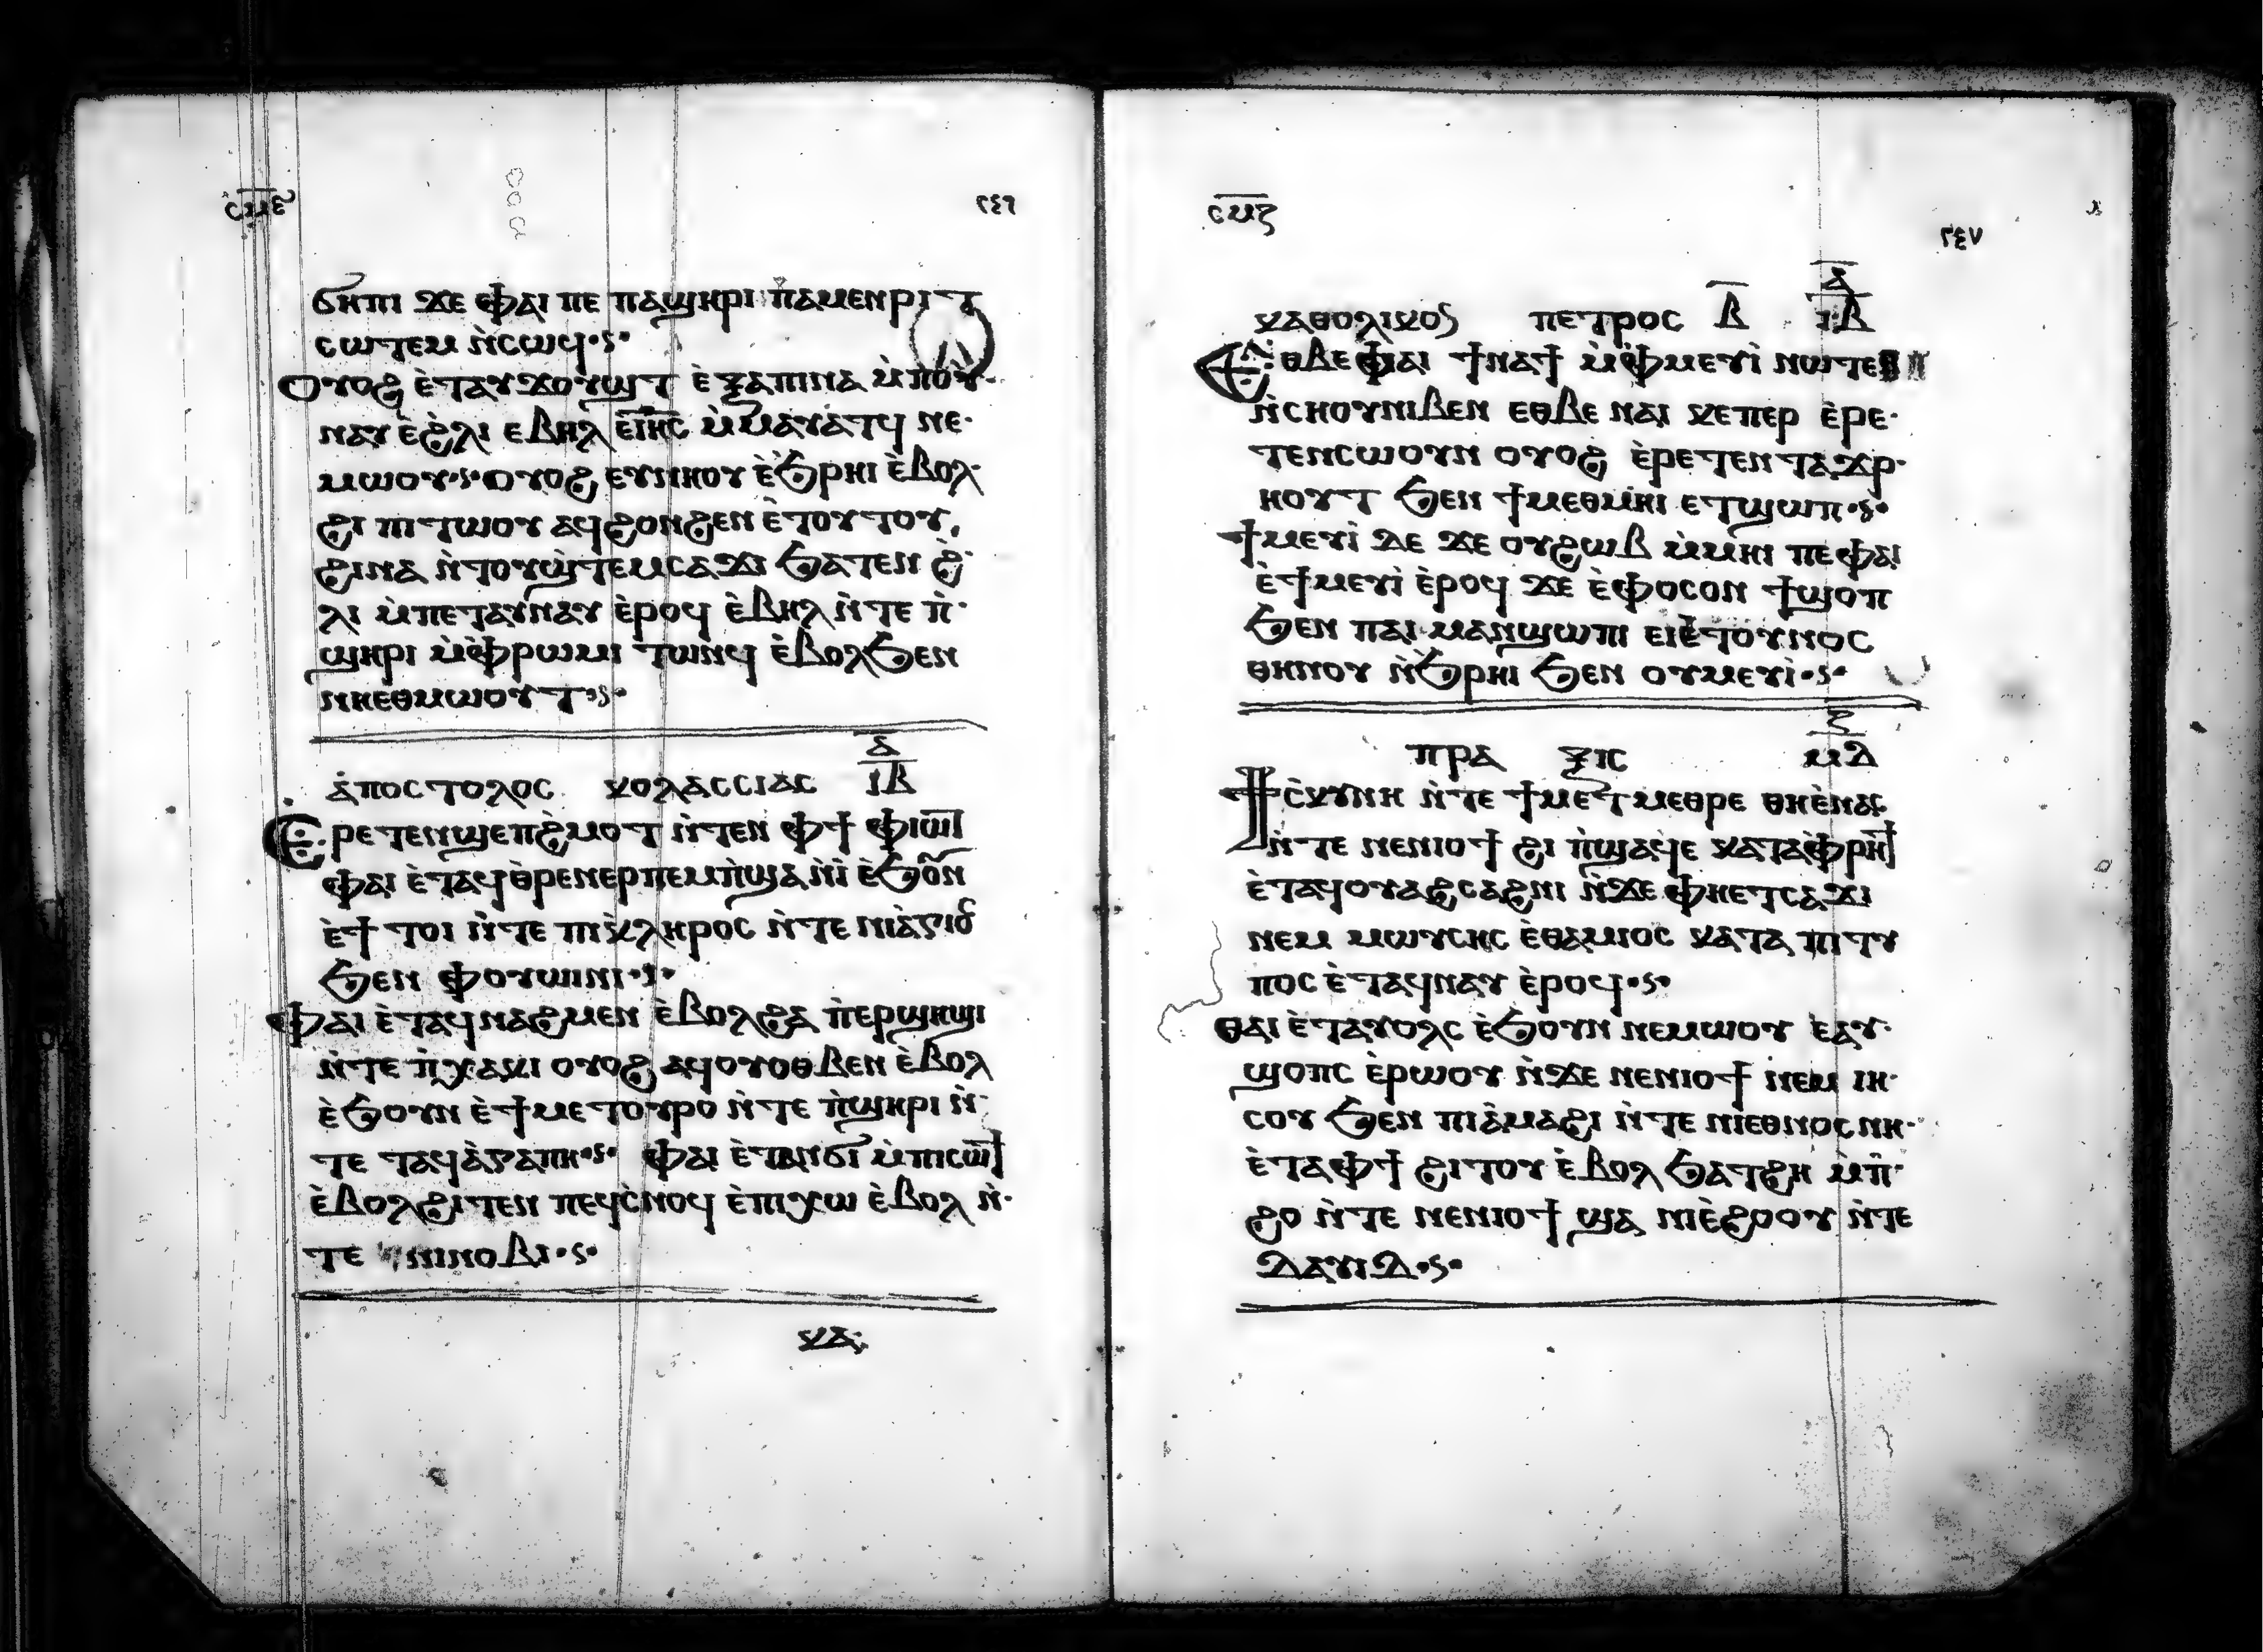 ⲥⲙⲋ ٢٤٦
ϭⲏⲡⲓ ϫⲉ ⲫⲁⲓ ⲡⲉ ⲡⲁϣⲏⲣⲓ ⲡⲁⲙⲉⲛⲣⲓⲧ
ⲥⲱⲧⲉⲙ ⲛ̀ⲥⲱϥ·ⲋ·
ⲟⲩⲟϩ ⲉ̀ⲧⲁⲩϫⲟⲩϣⲧ ⲉ̀ⲝⲁⲡⲓⲛⲁ ⲙ̀ⲡⲟⲩ·
ⲛⲁⲩ ⲉ̀ϩ̀ⲗⲓ ⲉⲃⲏⲗ ⲉ̀ⲓⲏ̅ⲥ̅ ⲙ̀ⲙⲁⲩⲁⲧϥ ⲛⲉ·
ⲙⲱⲟⲩ·ⲋ·ⲟⲩⲟϩ ⲉⲩⲛⲏⲟⲩ ⲉ̀ϧ̀ⲣⲏⲓ ⲉ̀ⲃⲟⲗ·
ϩⲓ ⲡⲓⲧⲱⲟⲩ ⲁϥϩⲟⲛϩⲉⲛ ⲉ̀ⲧⲟⲩⲧⲟⲩ,
ϩⲓⲛⲁ ⲛ̀ⲧⲟⲩϣ̀ⲧⲉⲙⲥⲁϫⲓ ϧⲁⲧⲉⲛ ϩ̀·
ⲗⲓ ⲙ̀ⲡⲉⲧⲁⲩⲛⲁⲩ ⲉ̀ⲣⲟϥ ⲉ̀ⲃⲏⲗ ⲛ̀ⲧⲉ ⲡ̀·
ϣⲏⲣⲓ ⲙ̀ⲫ̀ⲣⲱⲙⲓ ⲧⲱⲛϥ ⲉ̀ⲃⲟⲗϧⲉⲛ
ⲛⲏⲉⲑⲙⲱⲟⲩⲧ·ⲋ·
ⲁ̀ⲡⲟⲥⲧⲟⲗⲟⲥ ⲕⲟⲗⲁⲥⲥⲓⲁⲥ ⲁ̅ ⲓ̅ⲃ̅
Ⲉⲣⲉⲧⲉⲛϣⲉⲡϩ̀ⲙⲟⲧ ⲛ̀ⲧⲉⲛ ⲫϯ ⲫⲓⲱⲧ
ⲫⲁⲓ ⲉ̀ⲧⲁϥⲑⲣⲉⲛⲉⲣⲡⲉⲙⲡ̀ϣⲁ ⲛ̀ⲓ̀ ⲉ̀ϧⲟⲩⲛ
ⲉ̀ϯ ⲧⲟⲓ ⲛ̀ⲧⲉ ⲡⲓⲕ̀ⲗⲏⲣⲟⲥ ⲛ̀ⲧⲉ ⲛⲓⲁ̀ⲅⲓⲟⲥ
ϧⲉⲛ ⲫⲟⲩⲱⲓⲛⲓ·ⲋ·
ⲫⲁⲓ ⲉ̀ⲧⲁϥⲛⲁϩⲙⲉⲛ ⲉ̀ⲃⲟⲗϩⲁ ⲡⲉⲣϣⲓϣⲓ
ⲛ̀ⲧⲉ ⲡ̀ⲭⲁⲕⲓ ⲟⲩⲟϩ ⲁϥⲟⲩⲟⲑⲃⲉⲛ ⲉ̀ⲃⲟⲗ
ⲉ̀ϧⲟⲩⲛ ⲉ̀ϯⲙⲉⲧⲟⲩⲣⲟ ⲛ̀ⲧⲉ ⲡ̀ϣⲏⲣⲓ ⲛ̀·
ⲧⲉ ⲧⲁϥⲁ̀ⲅⲁⲡⲏ·ⲋ· ⲫⲁⲓ ⲉ̀ⲧⲁⲛϭⲓ ⲙ̀ⲡⲓⲥⲱϯ
ⲉ̀ⲃⲟⲗϩⲓⲧⲉⲛ ⲡⲉϥⲥ̀ⲛⲟϥ ⲉ̀ⲡⲓⲭⲱ ⲉ̀ⲃⲟⲗ ⲛ̀·
ⲧⲉ ⲛⲓⲛⲟⲃⲓ·ⲋ·
ⲕⲁ:
ⲥⲙⲍ ٢٤٧
ⲕⲁⲑⲟⲗⲓⲕⲟⲥ ⲡⲉⲧⲣⲟⲥ ⲃ̅ ⲁ̅ ⲓ̅ⲃ̅
Ⲉⲑⲃⲉ ⲫⲁⲓ ϯⲛⲁϯ ⲙ̀ⲫ̀ⲙⲉⲩⲓ̀ ⲛⲱⲧⲉⲛ
ⲛ̀ⲥⲏⲟⲩⲛⲓⲃⲉⲛ ⲉⲑⲃⲉ ⲛⲁⲓ ⲕⲉⲡⲉⲣ ⲉ̀ⲣⲉ·
ⲧⲉⲛⲥⲱⲟⲩⲛ ⲟⲩⲟϩ ⲉ̀ⲣⲉⲧⲉⲛⲧⲁϫⲣ·
ⲏⲟⲩⲧ ϧⲉⲛ ϯⲙⲉⲑⲙⲏⲓ ⲉⲧϣⲱⲡ·ⲋ·
ϯⲙⲉⲩⲓ̀ ⲇⲉ ϫⲉ ⲟⲩϩⲱⲃ ⲙ̀ⲙⲏⲓ ⲡⲉⲫⲁⲓ
ⲉ̀ϯⲙⲉⲩⲓ̀ ⲉ̀ⲣⲟϥ ϫⲉ ⲉ̀ⲫⲟⲥⲟⲛ ϯϣⲟⲡ
ϧⲉⲛ ⲡⲁⲓ ⲙⲁⲛϣⲱⲡⲓ ⲉⲓⲉ̀ⲧⲟⲩⲛⲟⲥ
ⲑⲏⲛⲟⲩ ⲛ̀ϧ̀ⲣⲏⲓ ϧⲉⲛ ⲟⲩⲙⲉⲩⲓ̀·ⲋ·
ⲡⲣⲁ ⲝⲓⲥ ⲍ̅ ⲙⲇ
Ϯⲥ̀ⲕⲩⲛⲏ ⲛ̀ⲧⲉ ϯⲙⲉⲧⲙⲉⲑⲣⲉ ⲑⲏⲉ̀ⲛⲁⲥ
ⲛ̀ⲧⲉ ⲛⲉⲛⲓⲟϯ ϩⲓ ⲡ̀ϣⲁϥⲉ ⲕⲁⲧⲁⲫ̀ⲣⲏϯ
ⲉ̀ⲧⲁϥⲟⲩⲁϩⲥⲁϩⲛⲓ ⲛ̀ϫⲉ ⲫⲏⲉⲧⲥⲁϫⲓ
ⲛⲉⲙ ⲙⲱⲩⲥⲏⲥ ⲉ̀ⲑⲁⲙⲓⲟⲥ ⲕⲁⲧⲁ ⲡⲓⲧⲩ
ⲡⲟⲥ ⲉ̀ⲧⲁϥⲛⲁⲩ ⲉ̀ⲣⲟϥ·ⲋ·
ⲑⲁⲓ ⲉ̀ⲧⲁⲩⲟⲗⲥ ⲉ̀ϧⲟⲩⲛ ⲛⲉⲙⲱⲟⲩ ⲉⲁⲩ·
ϣⲟⲡⲥ ⲉ̀ⲣⲱⲟⲩ ⲛ̀ϫⲉ ⲛⲉⲛⲓⲟϯ ⲛⲉⲙ ⲓⲏ·
ⲥⲟⲩ ϧⲉⲛ ⲡⲓⲁ̀ⲙⲁϩⲓ ⲛ̀ⲧⲉ ⲛⲓⲉⲑⲛⲟⲥ ⲛⲏ·
ⲉ̀ⲧⲁⲫϯ ϩⲓⲧⲟⲩ ⲉ̀ⲃⲟⲗ ϧⲁⲧϩⲏ ⲙ̀ⲡ̀·
ϩⲟ ⲛ̀ⲧⲉ ⲛⲉⲛⲓⲟϯ ϣⲁ ⲛⲓⲉ̀ϩⲟⲟⲩ ⲛ̀ⲧⲉ
ⲇⲁⲩⲓⲇ·ⲋ·